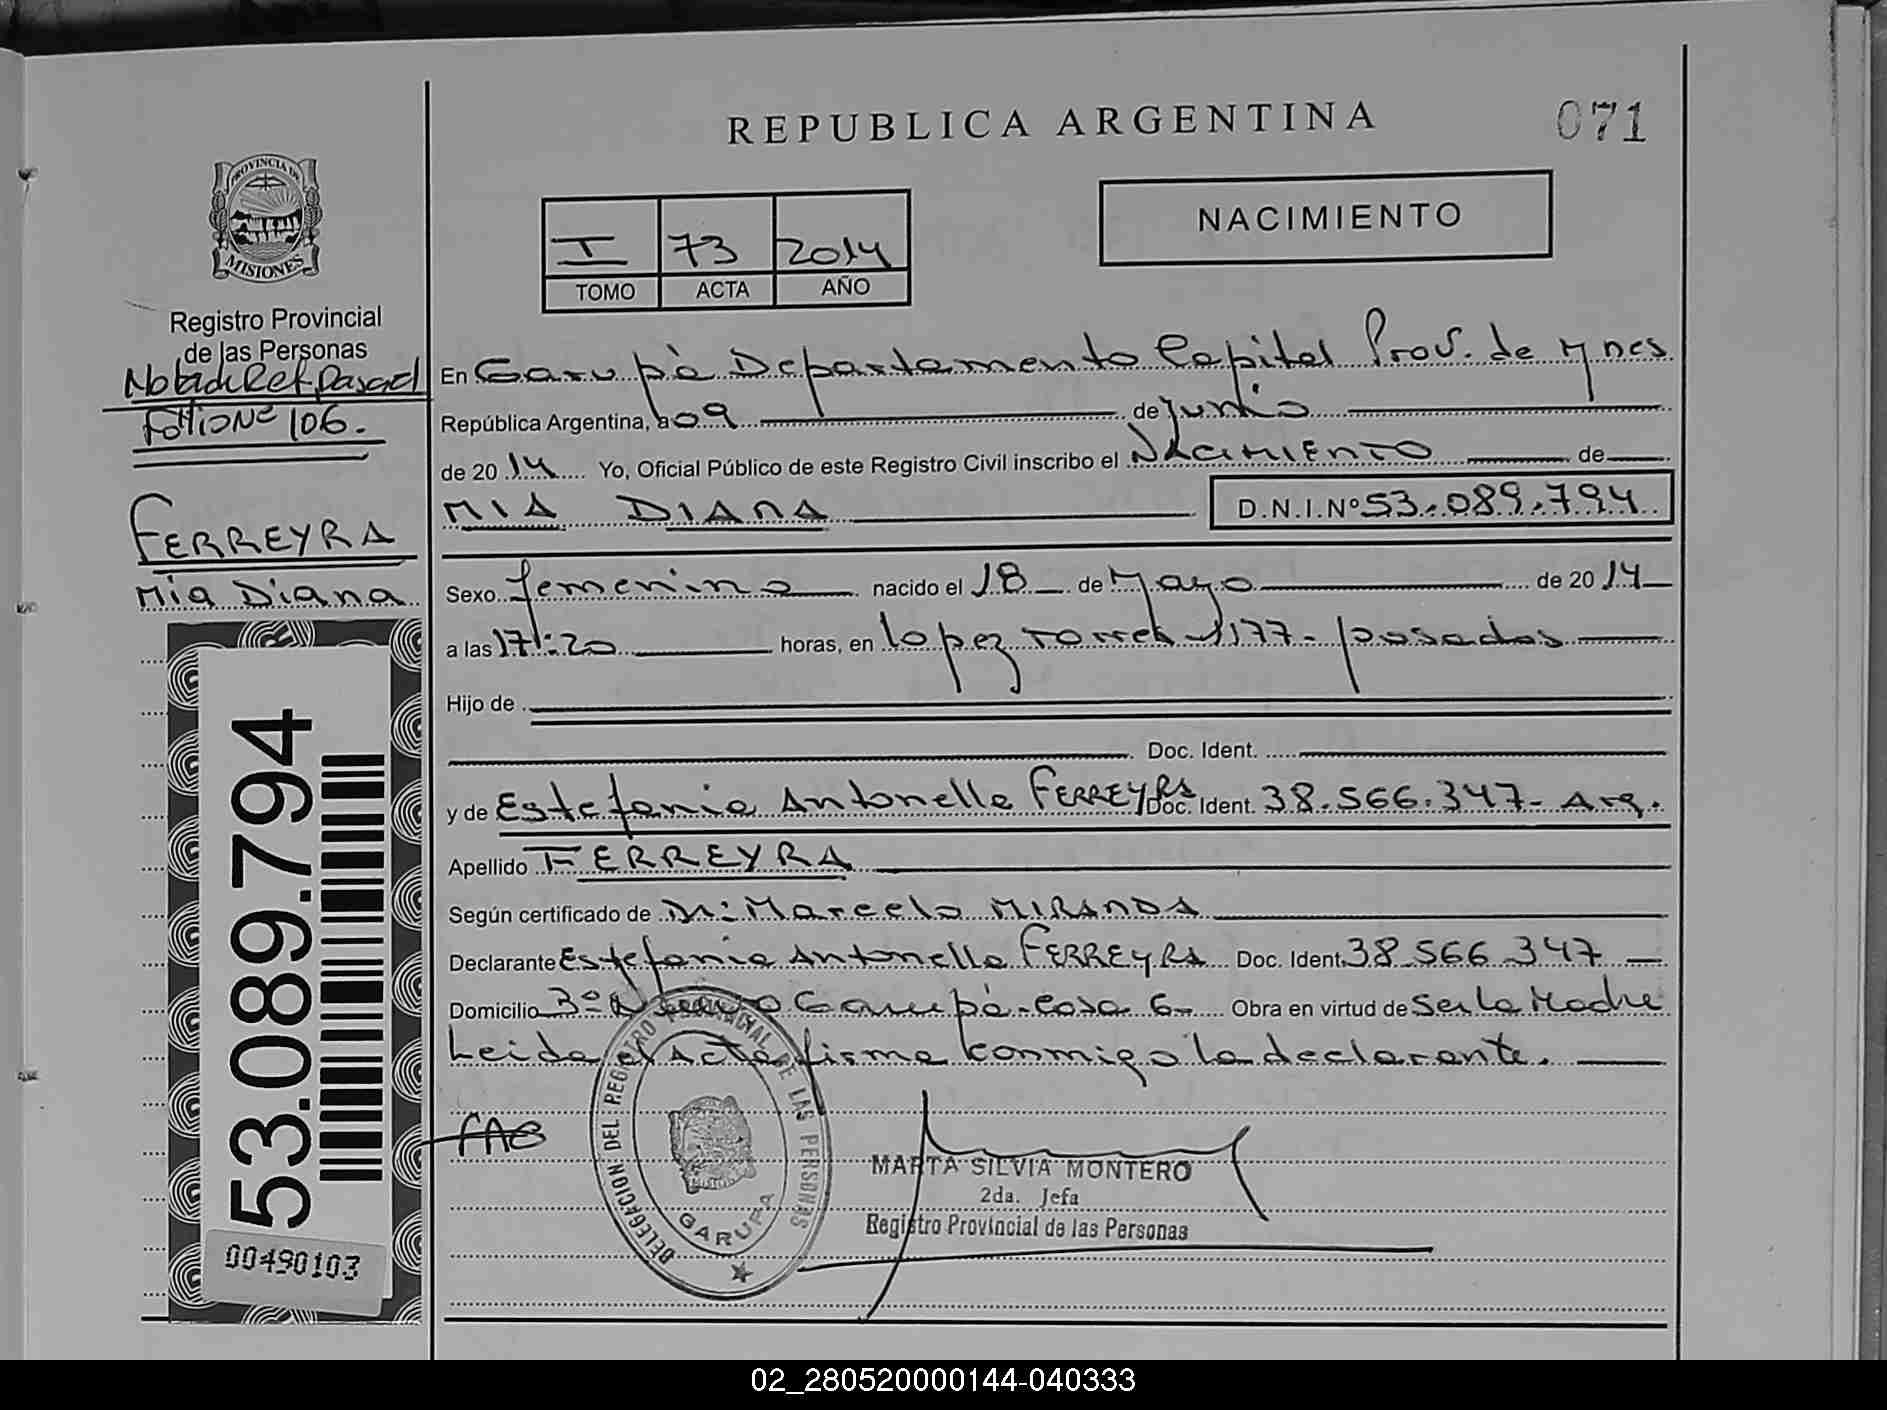 REPUBLICA ARGENTINA
071
PROVINCIA DE
MISIONES
Registro Provincial
de las Personas
Nota de Ref. pasa al
Folio Nº 106.
FERREYRA
Mia Diana
53.089.794
00490103
I 73 2014
TOMO ACTA AÑO
NACIMIENTO
En Garupà Departamento Capital Prov. de Mnes
República Argentina, a 09 de Junio
de 2014 Yo, Oficial Público de este Registro Civil inscribo el NACIMIENTO de
MIA DIANA D.N.I.Nº 53.089.794
Sexo femenino nacido el 18 de Mayo de 2014
a las 17:20 horas, en Lopez Torres 1177- posadas
Hijo de
Doc. Ident.
y de Estefania Antonella FERREYRA Doc. Ident. 38.566.347- Arg.
Apellido FERREYRA
Según certificado de Dr: Marcelo MIRANDA
Declarante Estefania Antonella FERREYRA Doc. Ident. 38.566.347
Domicilio 3º Garupà-Casa 6- Obra en virtud de Ser la Madre
Leida el Acta firma conmigo la declarante.
DELEGACION DEL REGISTRO PROVINCIAL DE LAS PERSONAS
GARUPA
MARTA SILVIA MONTERO
2da. Jefa
Registro Provincial de las Personas
02_280520000144-040333